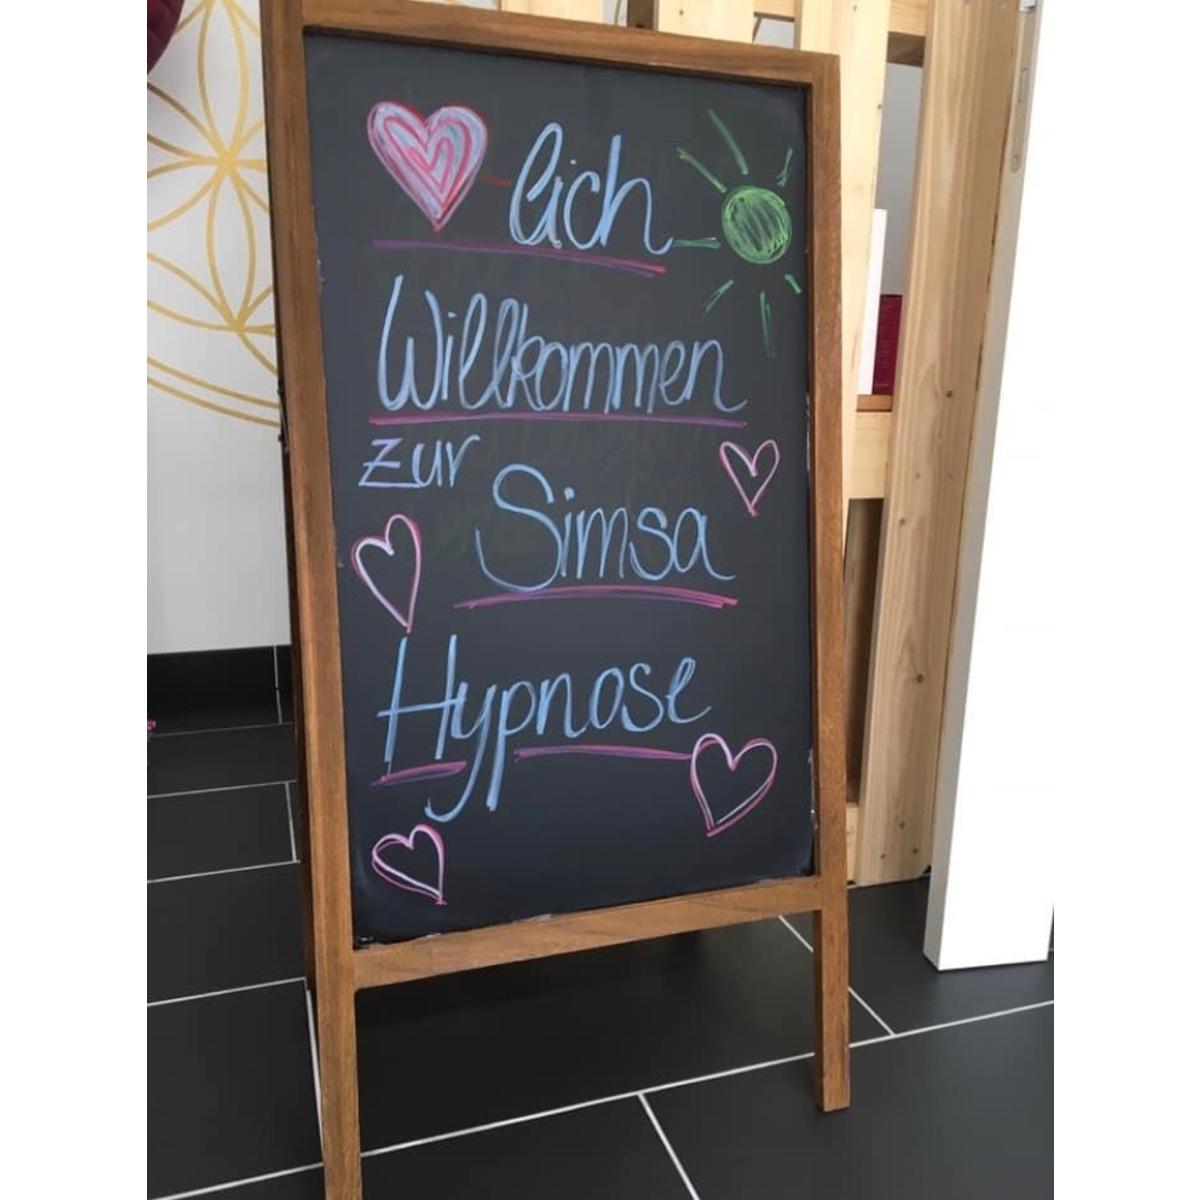 lich
Willkommen
zur
Simsa
Hypnose